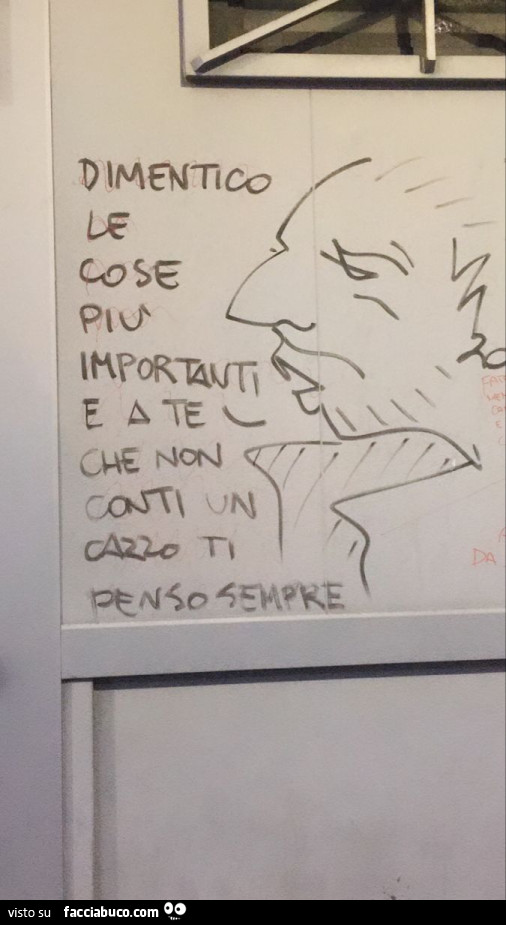 DIMENTICO
LE
COSE
PIU'
IMPORTANTI
E A TE
CHE NON
CONTI UN
CAZZO TI
PENSO SEMPRE
20
DA
visto su facciabuco.com